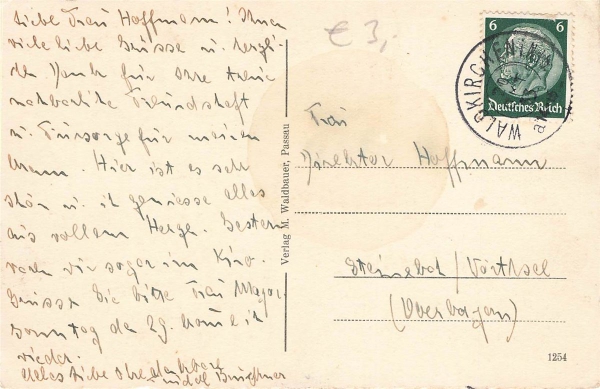 Liebe Frau Hoffmann! Ihnen
viele liebe Grüsse u. herzli-
chen Dank für Ihre treue
nachbarliche Freundschaft
u. Fürsorge für meinen
Mann. Hier ist es sehr
schön u. ich geniesse alles
aus vollem Herzen. Gestern
waren wir sogar im Kino.
Grüssen Sie bitte Frau Mayer.
Sonntag den 29. komme ich
wieder.
Alles Liebe Ihre dankbare
€ 3,-
6 6
Deutsches Reich
WALDKIRCHEN
Frau
Direktor Hoffmann
Steinebach/Wörthsee
(Oberbayern)
Verlag M. Waldbauer, Passau
1254